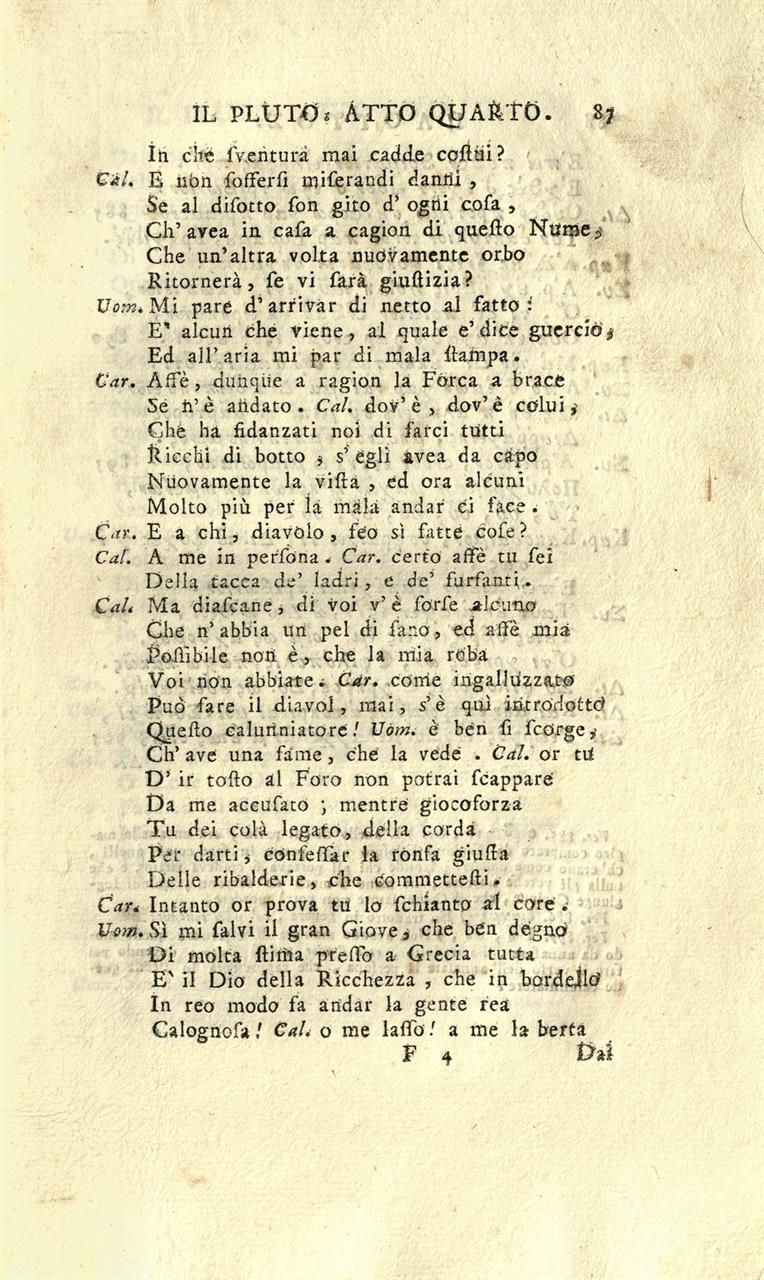 IL PLUTO. ATTO QUARTO. 87
In che ſventura mai cadde coſtui?
Cal. E non ſofferſi miſerandi danni,
Se al diſotto ſon gito d' ogni coſa,
Ch'avea in caſa a cagion di queſto Nume,
Che un'altra volta nuovamente orbo
Ritornerà, ſe vi ſarà giuſtizia?
Uom. Mi pare d'arrivar di netto al fatto:
E' alcun che viene, al quale e'dice guercio,
Ed all'aria mi par di mala ſtampa.
Car. Affè, dunque a ragion la Forca a brace
Se n'è andato. Cal. dov'è, dov'è colui,
Che ha fidanzati noi di farci tutti
Ricchi di botto, s'egli avea da capo
Nuovamente la viſta, ed ora alcuni
Molto più per la mala andar ci face.
Car. E a chi, diavolo, feo sì fatte coſe?
Cal. A me in perſona. Car. certo affè tu ſei
Della tacca de' ladri, e de' furfanti.
Cal. Ma diaſcane, di voi v'è forſe alcuno
Che n'abbia un pel di ſano, ed affè mia
Poſſibile non è, che la mia roba
Voi non abbiate. Car. come ingalluzzato
Può fare il diavol, mai, s'è quì introdotto
Queſto calunniatore! Uom. è ben ſi ſcorge,
Ch'ave una fame, che la vede. Cal. or tu
D'ir toſto al Foro non potrai ſcappare
Da me accuſato; mentre giocoforza
Tu dei colà legato, della corda
Per darti, confeſſar la ronfa giuſta
Delle ribalderie, che commetteſti.
Car. Intanto or prova tu lo ſchianto al core.
Uom. Sì mi ſalvi il gran Giove, che ben degno
Di molta ſtima preſſo a Grecia tutta
E' il Dio della Ricchezza, che in bordello
In reo modo fa andar la gente rea
Calognoſa! Cal. o me laſſo! a me la berta
F 4 Dal